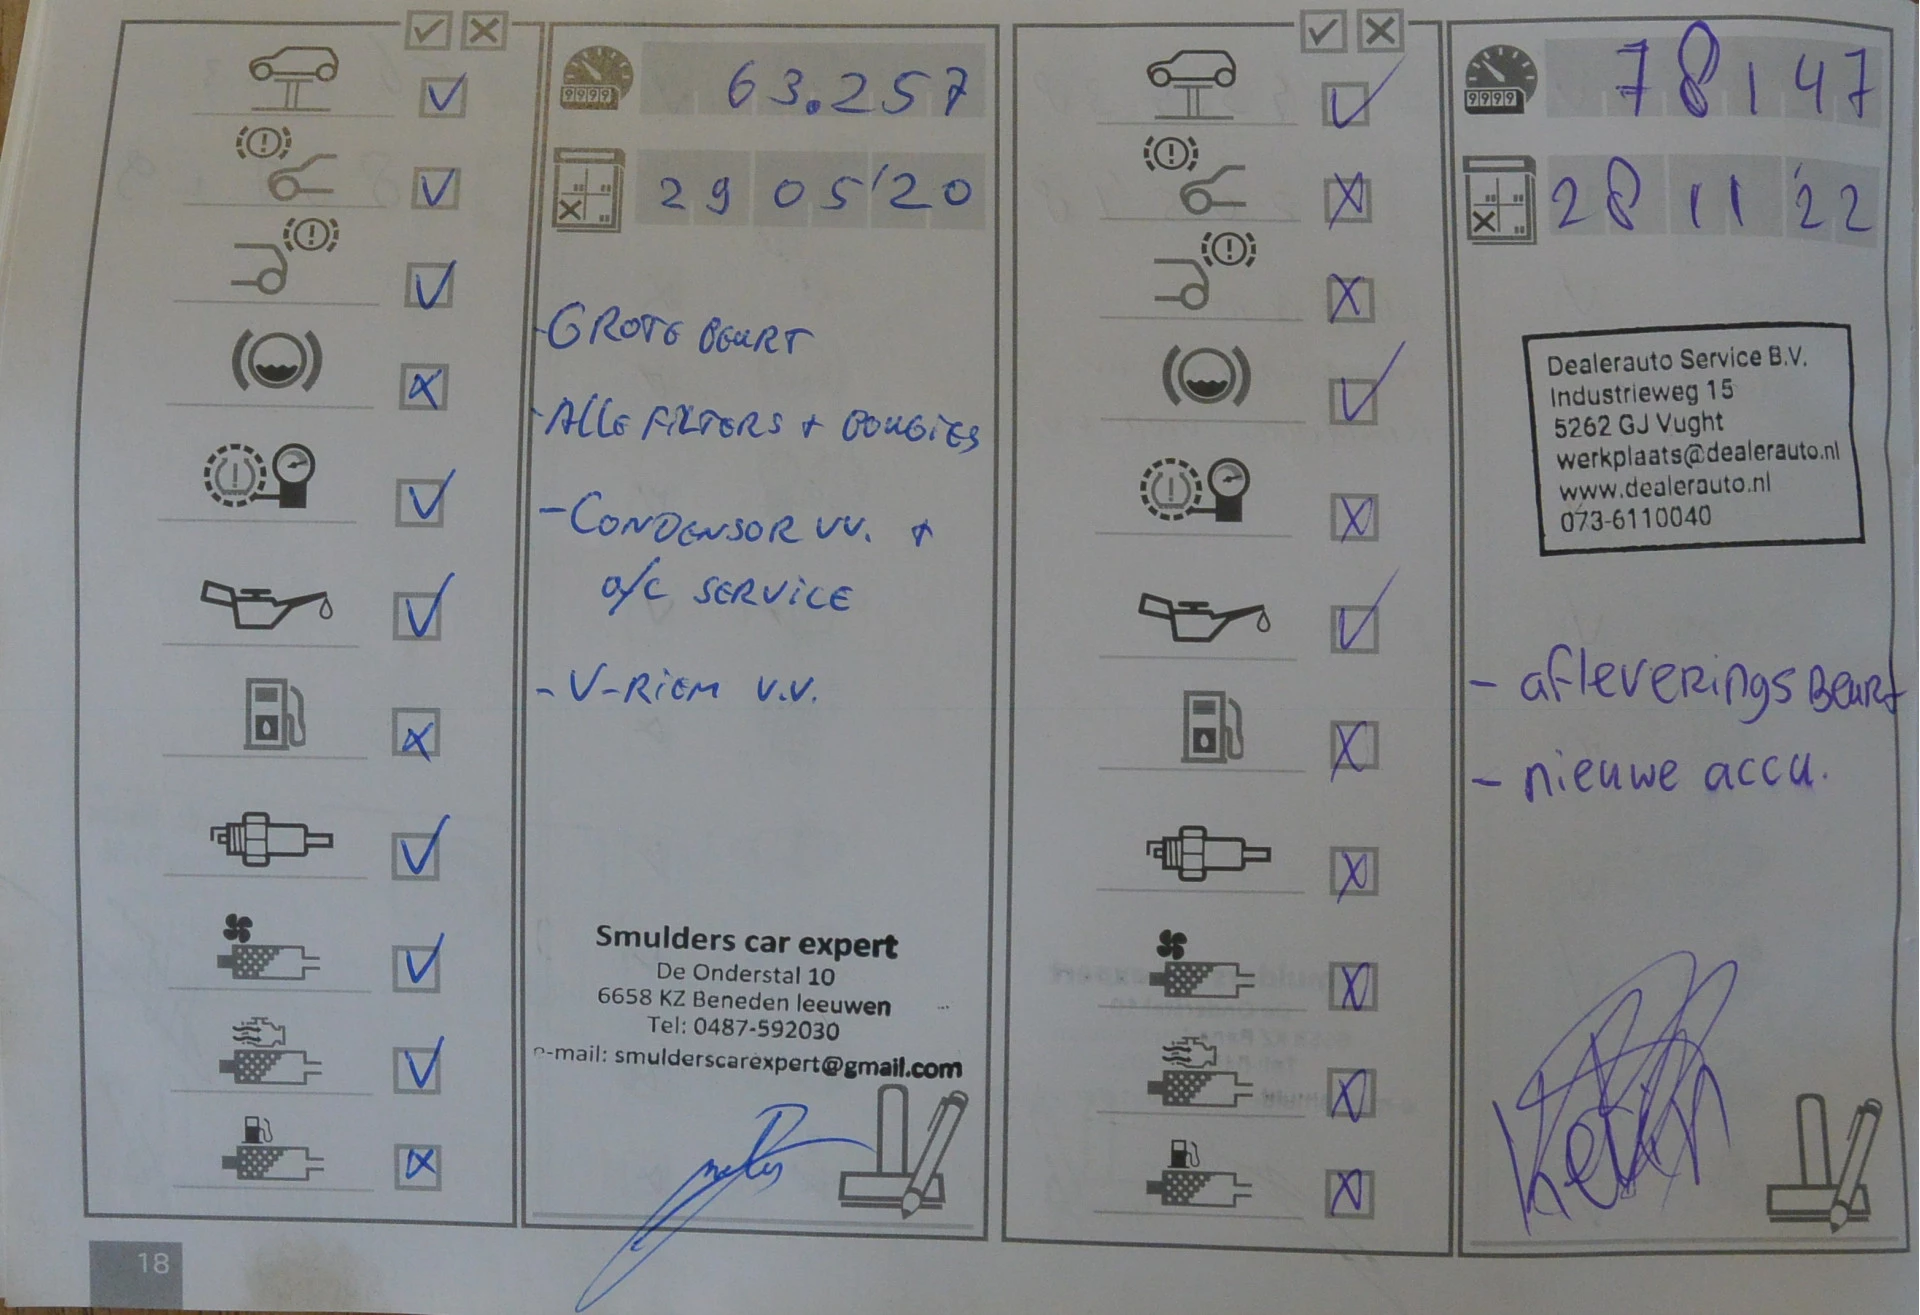 9999
63.257
29 05 '20
- GROTE BEURT
- ALLE FILTERS + BOUGIES
- CONDENSOR VV. +
a/c SERVICE
- V-RIEM V.V.
Smulders car expert
De Onderstal 10
6658 KZ Beneden leeuwen
Tel: 0487-592030
e-mail: smulderscarexpert@gmail.com
18
9999
78147
28 11 '22
Dealerauto Service B.V.
Industrieweg 15
5262 GJ Vught
werkplaats@dealerauto.nl
www.dealerauto.nl
073-6110040
- afleveringsBeurt
- nieuwe accu.
Kevin